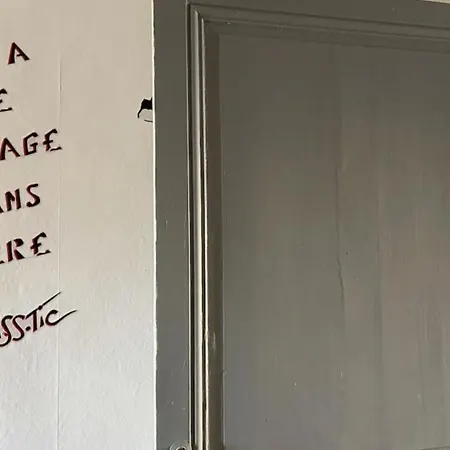 A
E
AGE
NS
RE
SS.Tic